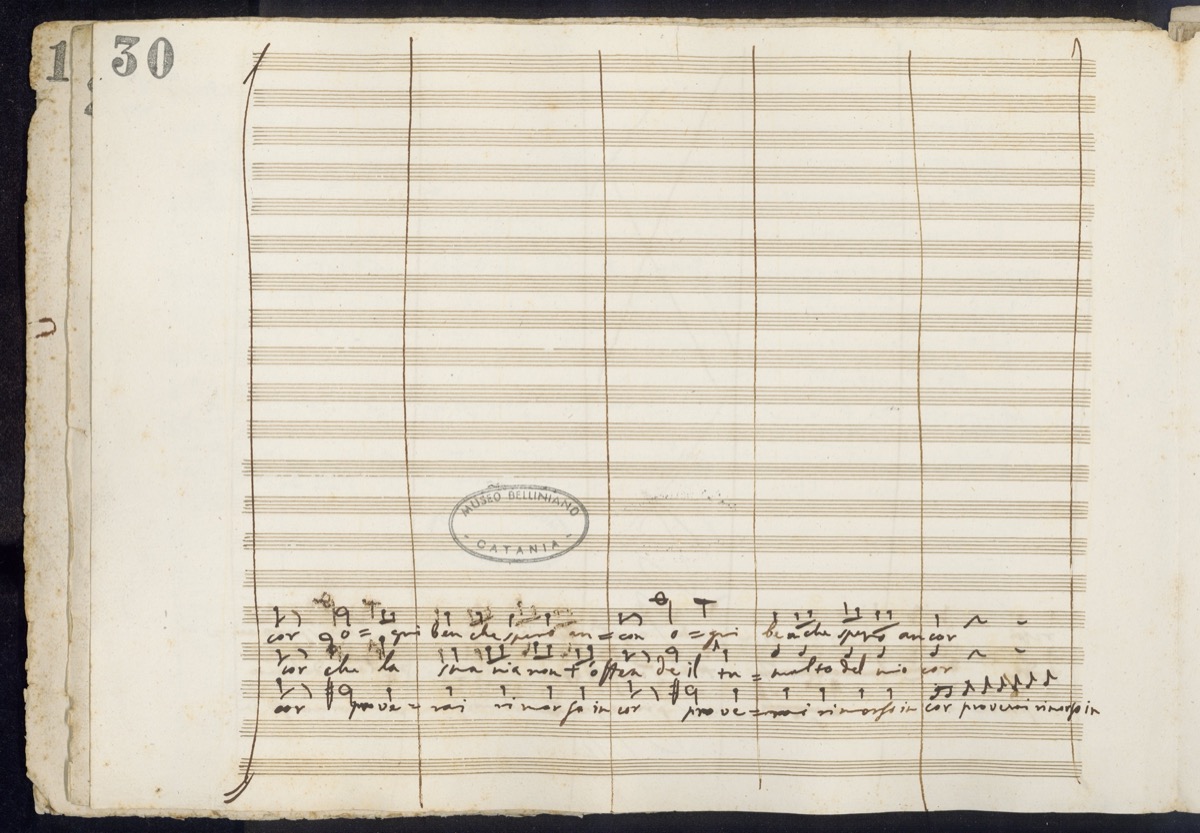 1
30
MUSEO BELLINIANO
- CATANIA -
cor o = gni ben che spero an = cor o = gni ben che spero ancor
cor che la smania non t'offen de il tu = multo del mio cor
cor prove = rai rimorso in cor prove = rai rimorso in cor proverai rimorso in